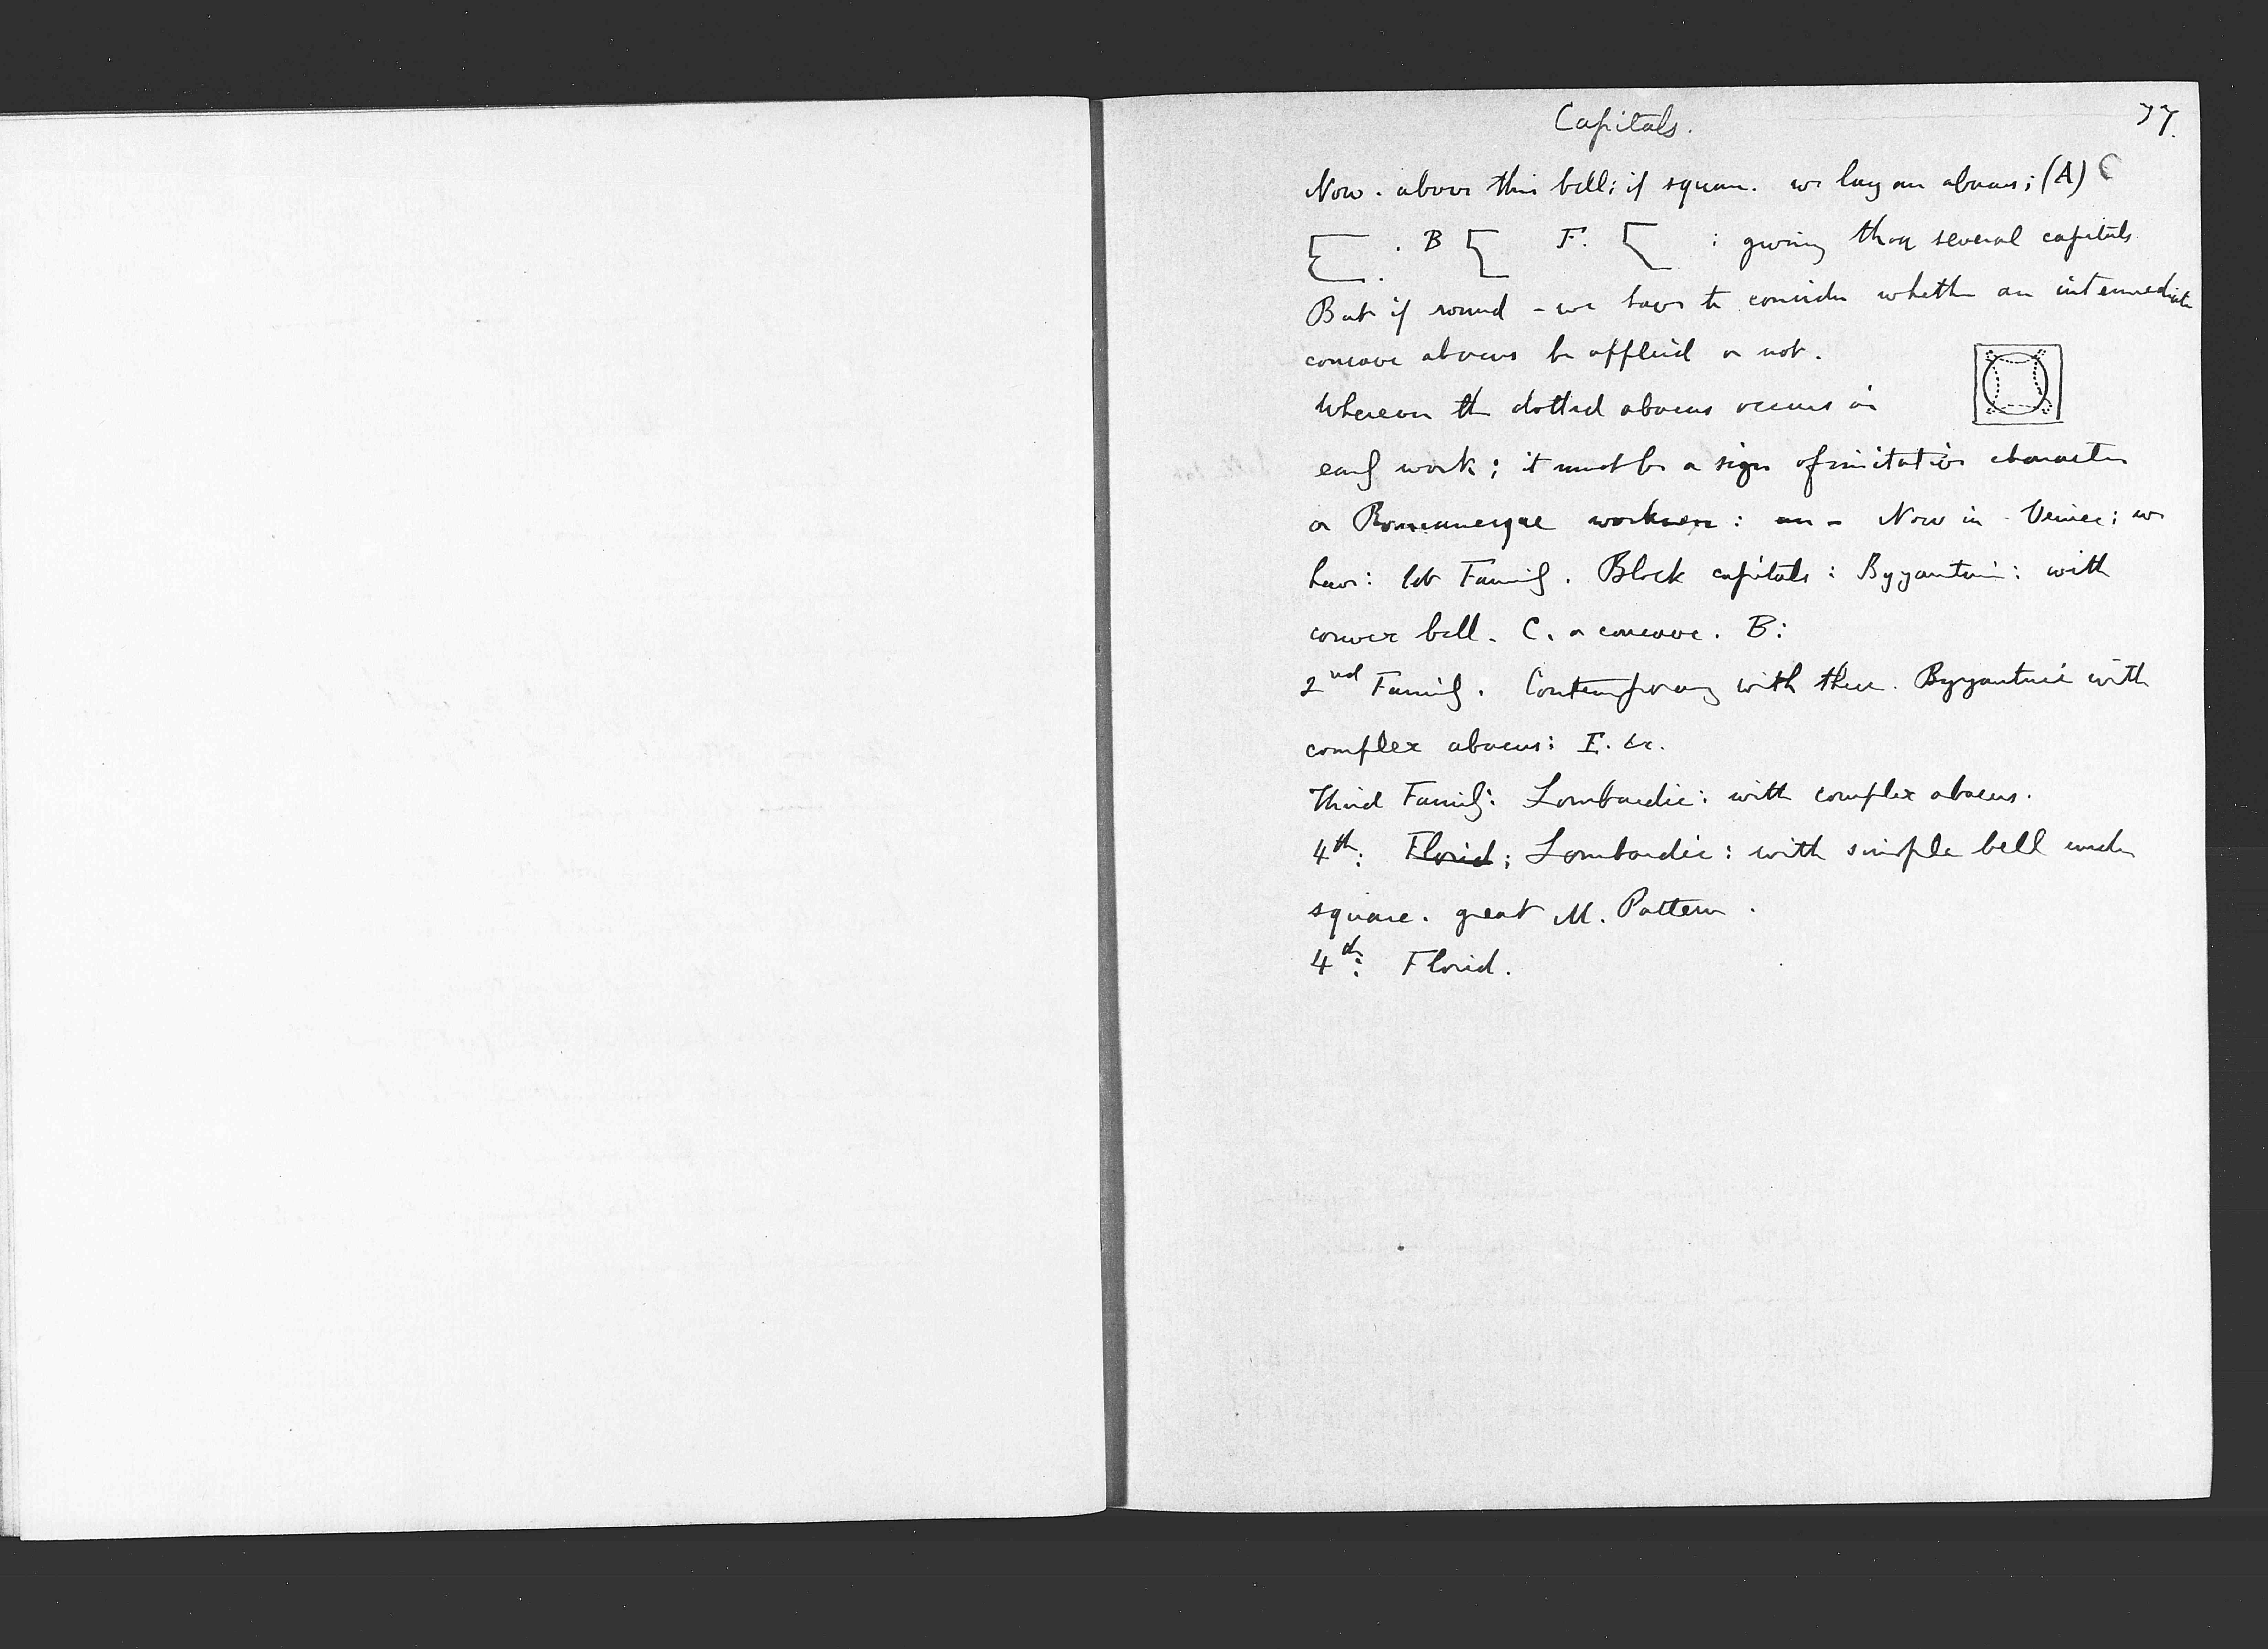 Capitals.
77.
Now. above this bell; if square. we lay an abacus; (A) C
. B F. : giving thus several capitals
But if round - we have to consider whether an intermediate
concave abacus be applied or not.
Wherever the dotted abacus occurs in
early work; it must be a sign of imitative character
or Romanesque workmen: an - Now in Venice; we
have: 1st Family. Block capitals: Byzantine: with
convex bell. C. or concave. B:
2nd Family. Contemporary with these. Byzantine with
complex abacus: E. &c.
Third Family: Lombardic: with complex abacus.
4th: Florid; Lombardic: with simple bell under
square. great M. Pattern.
4th: Florid.